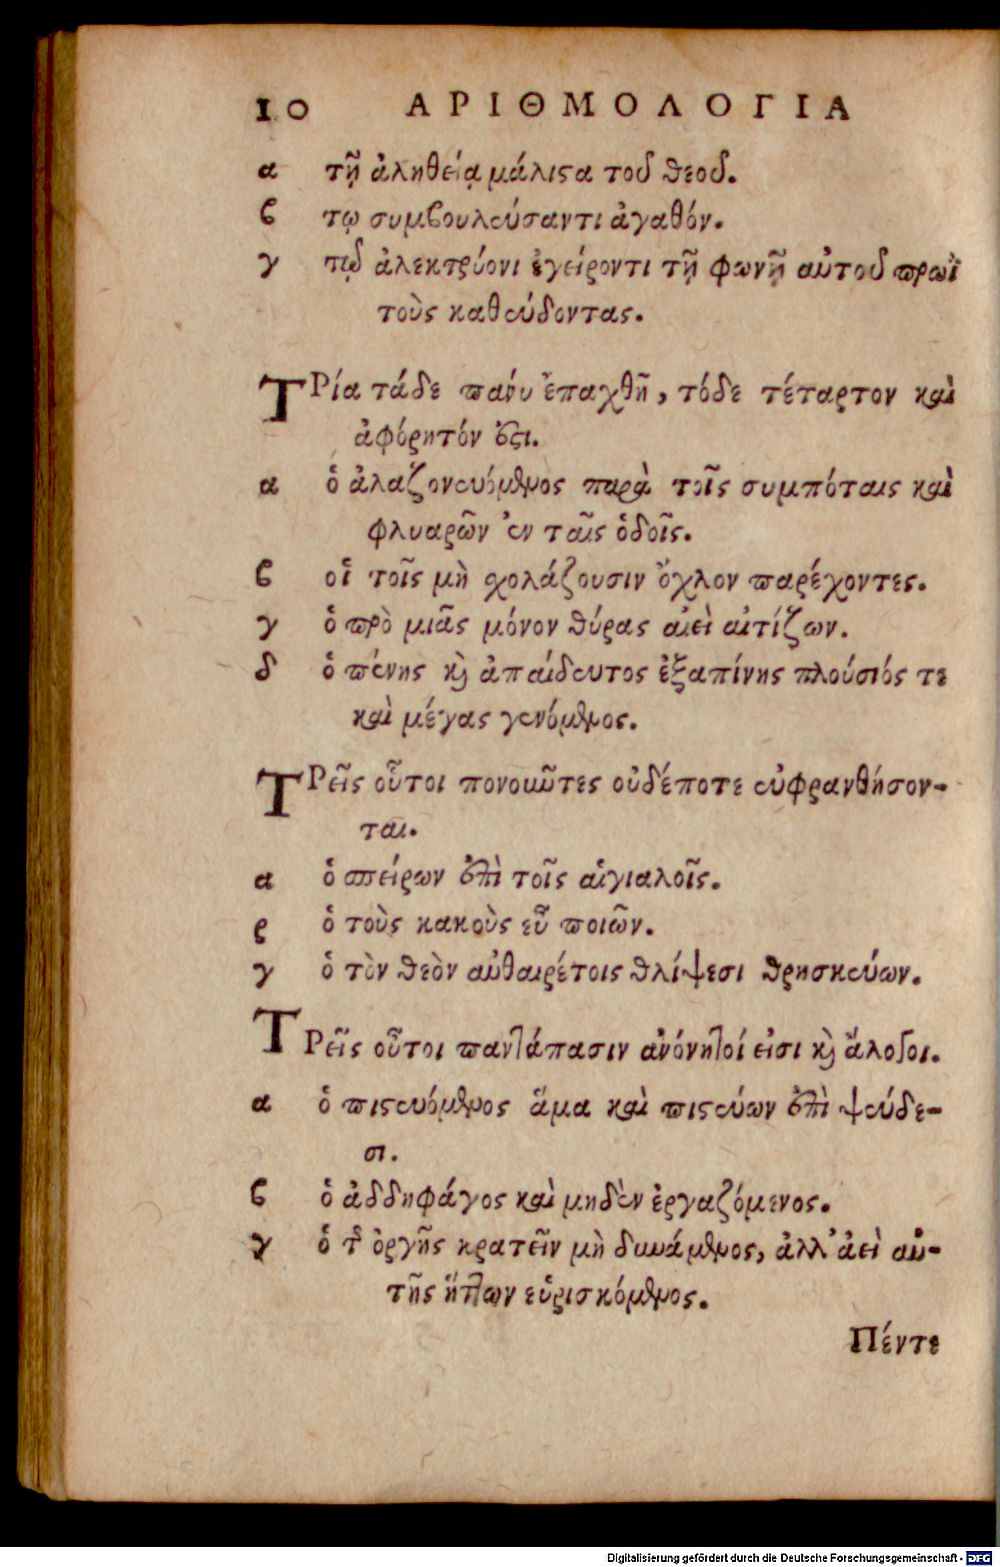 10 ΑΡΙΘΜΟΛΟΓΙΑ
α τῇ ἀληθείᾳ μάλιϛα τοῦ θεοῦ.
ϐ τῳ συμϐουλεύσαντι ἀγαθόν.
γ τῷ ἀλεκτρύονι ἐγείροντι τῇ φωνῇ αὐτοῦ πρωῒ
τοὺς καθεύδοντας.
ΤΡία τάδε πάνυ ἐπαχθῆ, τόδε τέταρτον καὶ
ἀφόρητόν ἐϛι.
α ὁ ἀλαζονευόμενος παρὰ τοῖς συμπόταις καὶ
φλυαρῶν ἐν ταῖς ὁδοῖς.
ϐ οἱ τοῖς μὴ σχολάζουσιν ὄχλον παρέχοντες.
γ ὁ πρὸ μιᾶς μόνον θύρας αἰεὶ αἰτίζων.
δ ὁ πένης καὶ ἀπαίδευτος ἐξαπίνης πλούσιός τε
καὶ μέγας γενόμενος.
ΤΡεῖς οὗτοι πονοῦντες οὐδέποτε εὐφρανθήσον-
ται.
α ὁ σπείρων ἐπὶ τοῖς αἰγιαλοῖς.
ϐ ὁ τοὺς κακοὺς εὖ ποιῶν.
γ ὁ τὸν θεὸν αὐθαιρέτοις θλίψεσι θρησκεύων.
ΤΡεῖς οὗτοι παντάπασιν ἀνόνητοί εἰσι καὶ ἄλογοι.
α ὁ πιϛευόμενος ἅμα καὶ πιϛεύων ἐπὶ ψεύδε-
σι.
ϐ ὁ ἀδδηφάγος καὶ μηδὲν ἐργαζόμενος.
γ ὁ τῆς ὀργῆς κρατεῖν μὴ δυνάμενος, ἀλλ' ἀεὶ αὐ-
τῆς ἥττων εὑρισκόμενος.
Πέντε
Digitalisierung gefördert durch die Deutsche Forschungsgemeinschaft - DFG